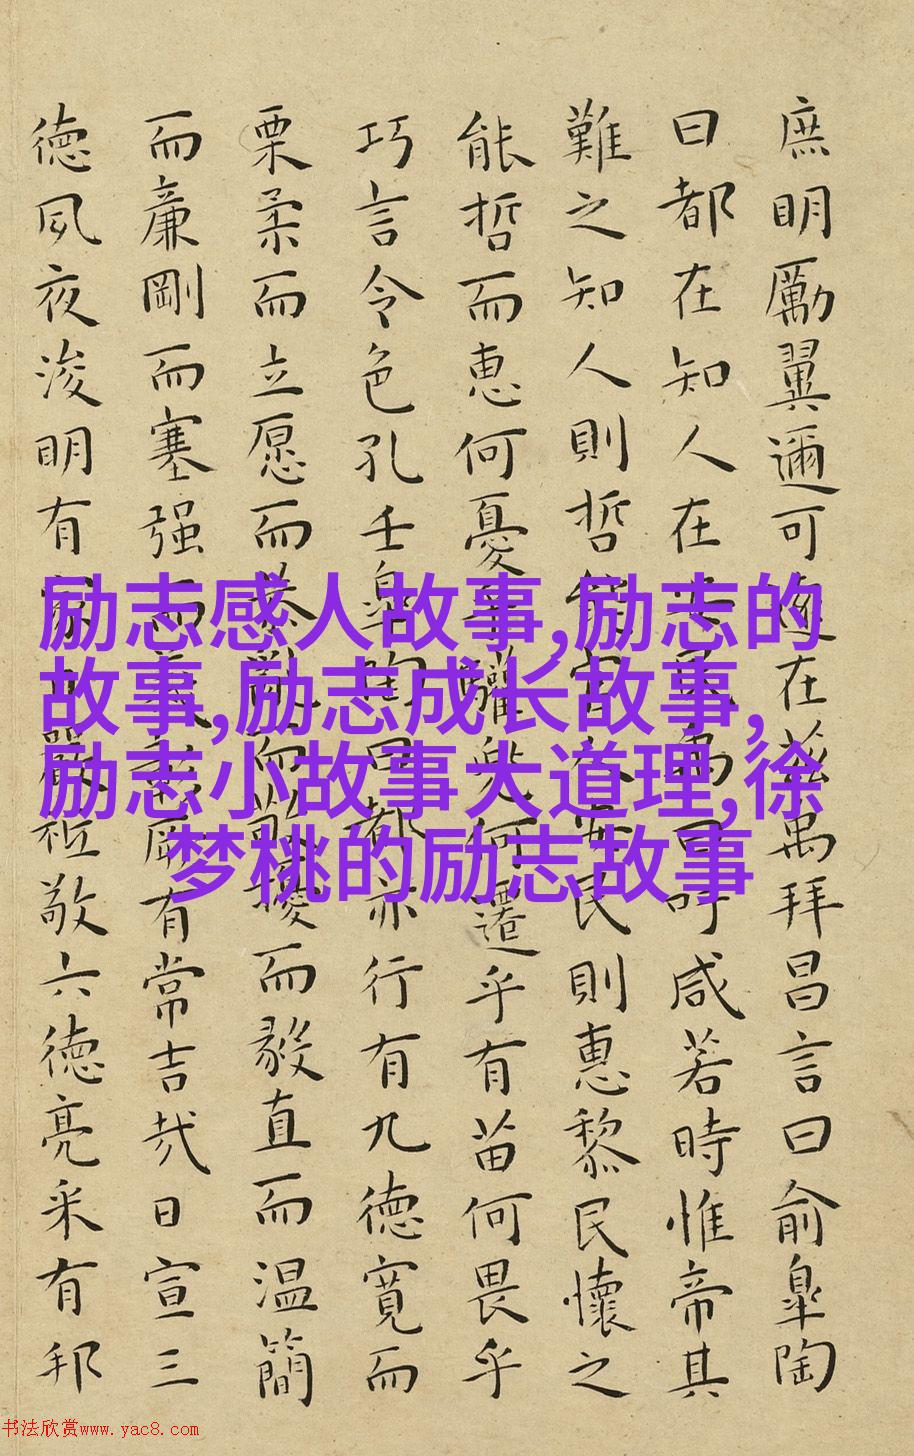 庶明勵翼邇可遠在茲禹拜昌言曰俞皐陶
曰都在知人在安民禹曰吁咸若時惟帝其
難之知人則哲能官人安民則惠黎民懷之
能哲而惠何憂乎驩兜何遷乎有苗何畏乎
巧言令色孔壬皐陶曰都亦行有九德寬而
栗柔而立愿而恭亂而敬擾而毅直而温簡
而廉剛而塞强而義彰厥有常吉哉日宣三
德夙夜浚明有家日嚴祗敬六德亮采有邦
励志感人故事,励志的
故事,励志成长故事,
励志小故事大道理,徐
梦桃的励志故事
书法欣赏www.yac8.com